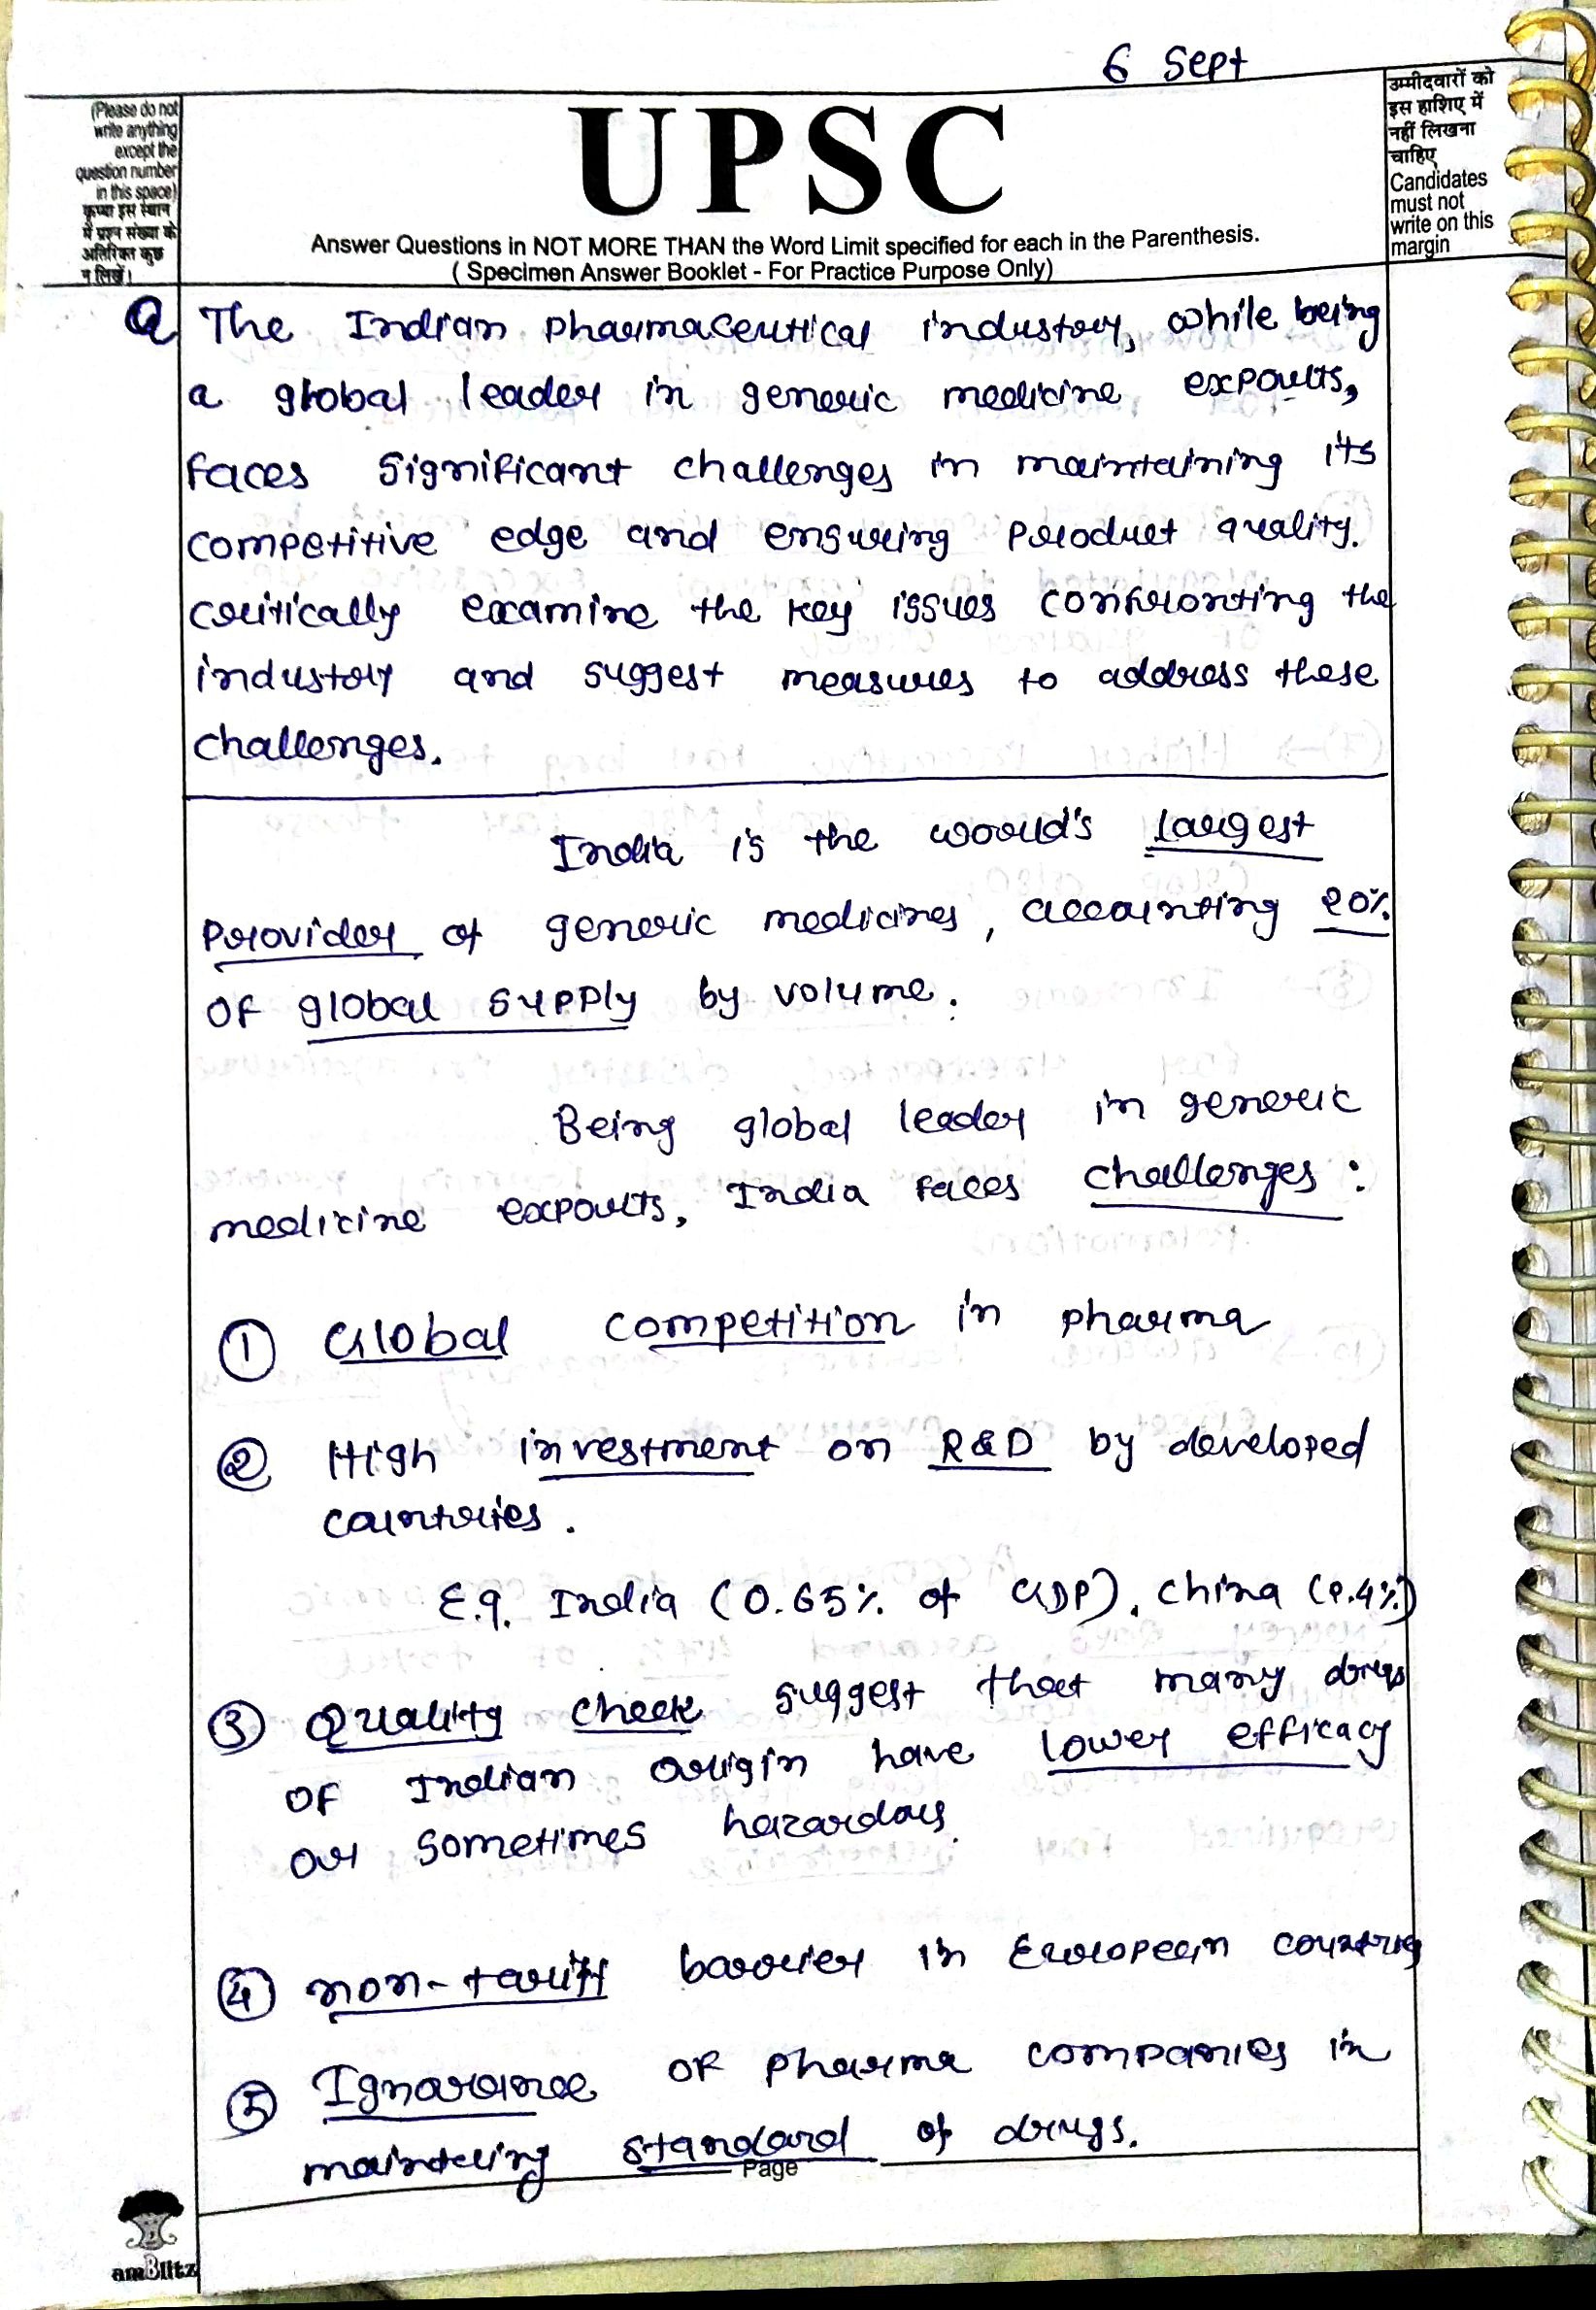 6 Sept
(Please do not
write anything
except the
question number
in this space)
कृपया इस स्थान
में प्रश्न संख्या के
अतिरिक्त कुछ
न लिखें।
UPSC
Answer Questions in NOT MORE THAN the Word Limit specified for each in the Parenthesis.
( Specimen Answer Booklet - For Practice Purpose Only)
उम्मीदवारों को
इस हाशिए में
नहीं लिखना
चाहिए
Candidates
must not
write on this
margin
Q The Indian pharmaceutical industry, while being
a global leader in generic medicine exports,
faces significant challenges in maintaining its
competitive edge and ensuring product quality.
critically examine the key issues confronting the
industry and suggest measures to address these
challenges.
India is the world's largest
Provider of generic medicines, accounting 20%
OF global supply by volume.
Being global leader in generic
medicine exports, India faces challenges :
① Global competition in pharma
② High investment on R&D by developed
countries.
E.g. India (0.65% of GDP), China (2.4%)
③ Quality check suggest that many drugs
OF Indian origin have lower efficacy
or sometimes hazardous.
④ non-tariff barrier in European countries
⑤ Ignorance OF pharma companies in
maintaing standard of drugs.
Page
amBlitz